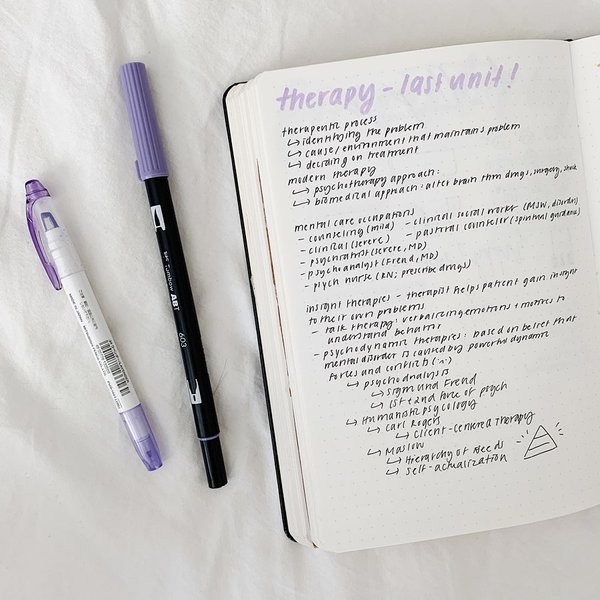 therapy - last unit!
therapeutic process
↳ identifying the problem
↳ cause/environment that maintains problem
↳ deciding on treatment
modern therapy
↳ psychotherapy approach:
↳ biomedical approach: alter brain thru drugs, surgery, shock
mental care occupations
- counseling (mild) - clinical social works (MSW, disorders)
- clinical (severe) - pastoral counselor (spiritual guidance)
- psychiatrist (severe, MD)
- psychoanalyst (Freud, MD)
- psych nurse (RN; prescribe drugs)
insight therapies - therapist helps patient gain insight
to their own problems
- talk therapy: verbalizing emotions + motives to
understand behavior
- psychodynamic therapies: based on belief that
mental disorder is caused by powerful dynamic
forces and conflicts
↳ psychoanalysis
↳ Sigmund Freud
↳ 1st + 2nd force of psych
↳ Humanistic psychology
↳ Carl Rogers
↳ Client-Centered Therapy
↳ Maslow
↳ Hierarchy of Needs
↳ self-actualization
Tombow ABT
603